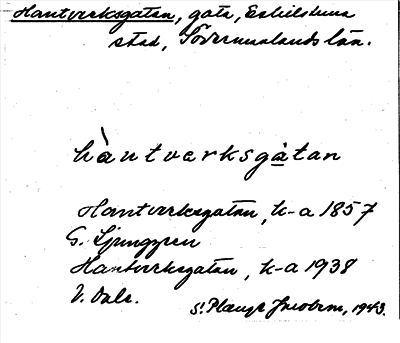 Hantverksgatan, gata, Eskilstuna
stad, Södermanlands län.
hàntvarksgàtan
Hantverksgatan, k-a 1857
G. Ljunggren
Hantverksgatan, k-a 1938
V. Dale.
1943.